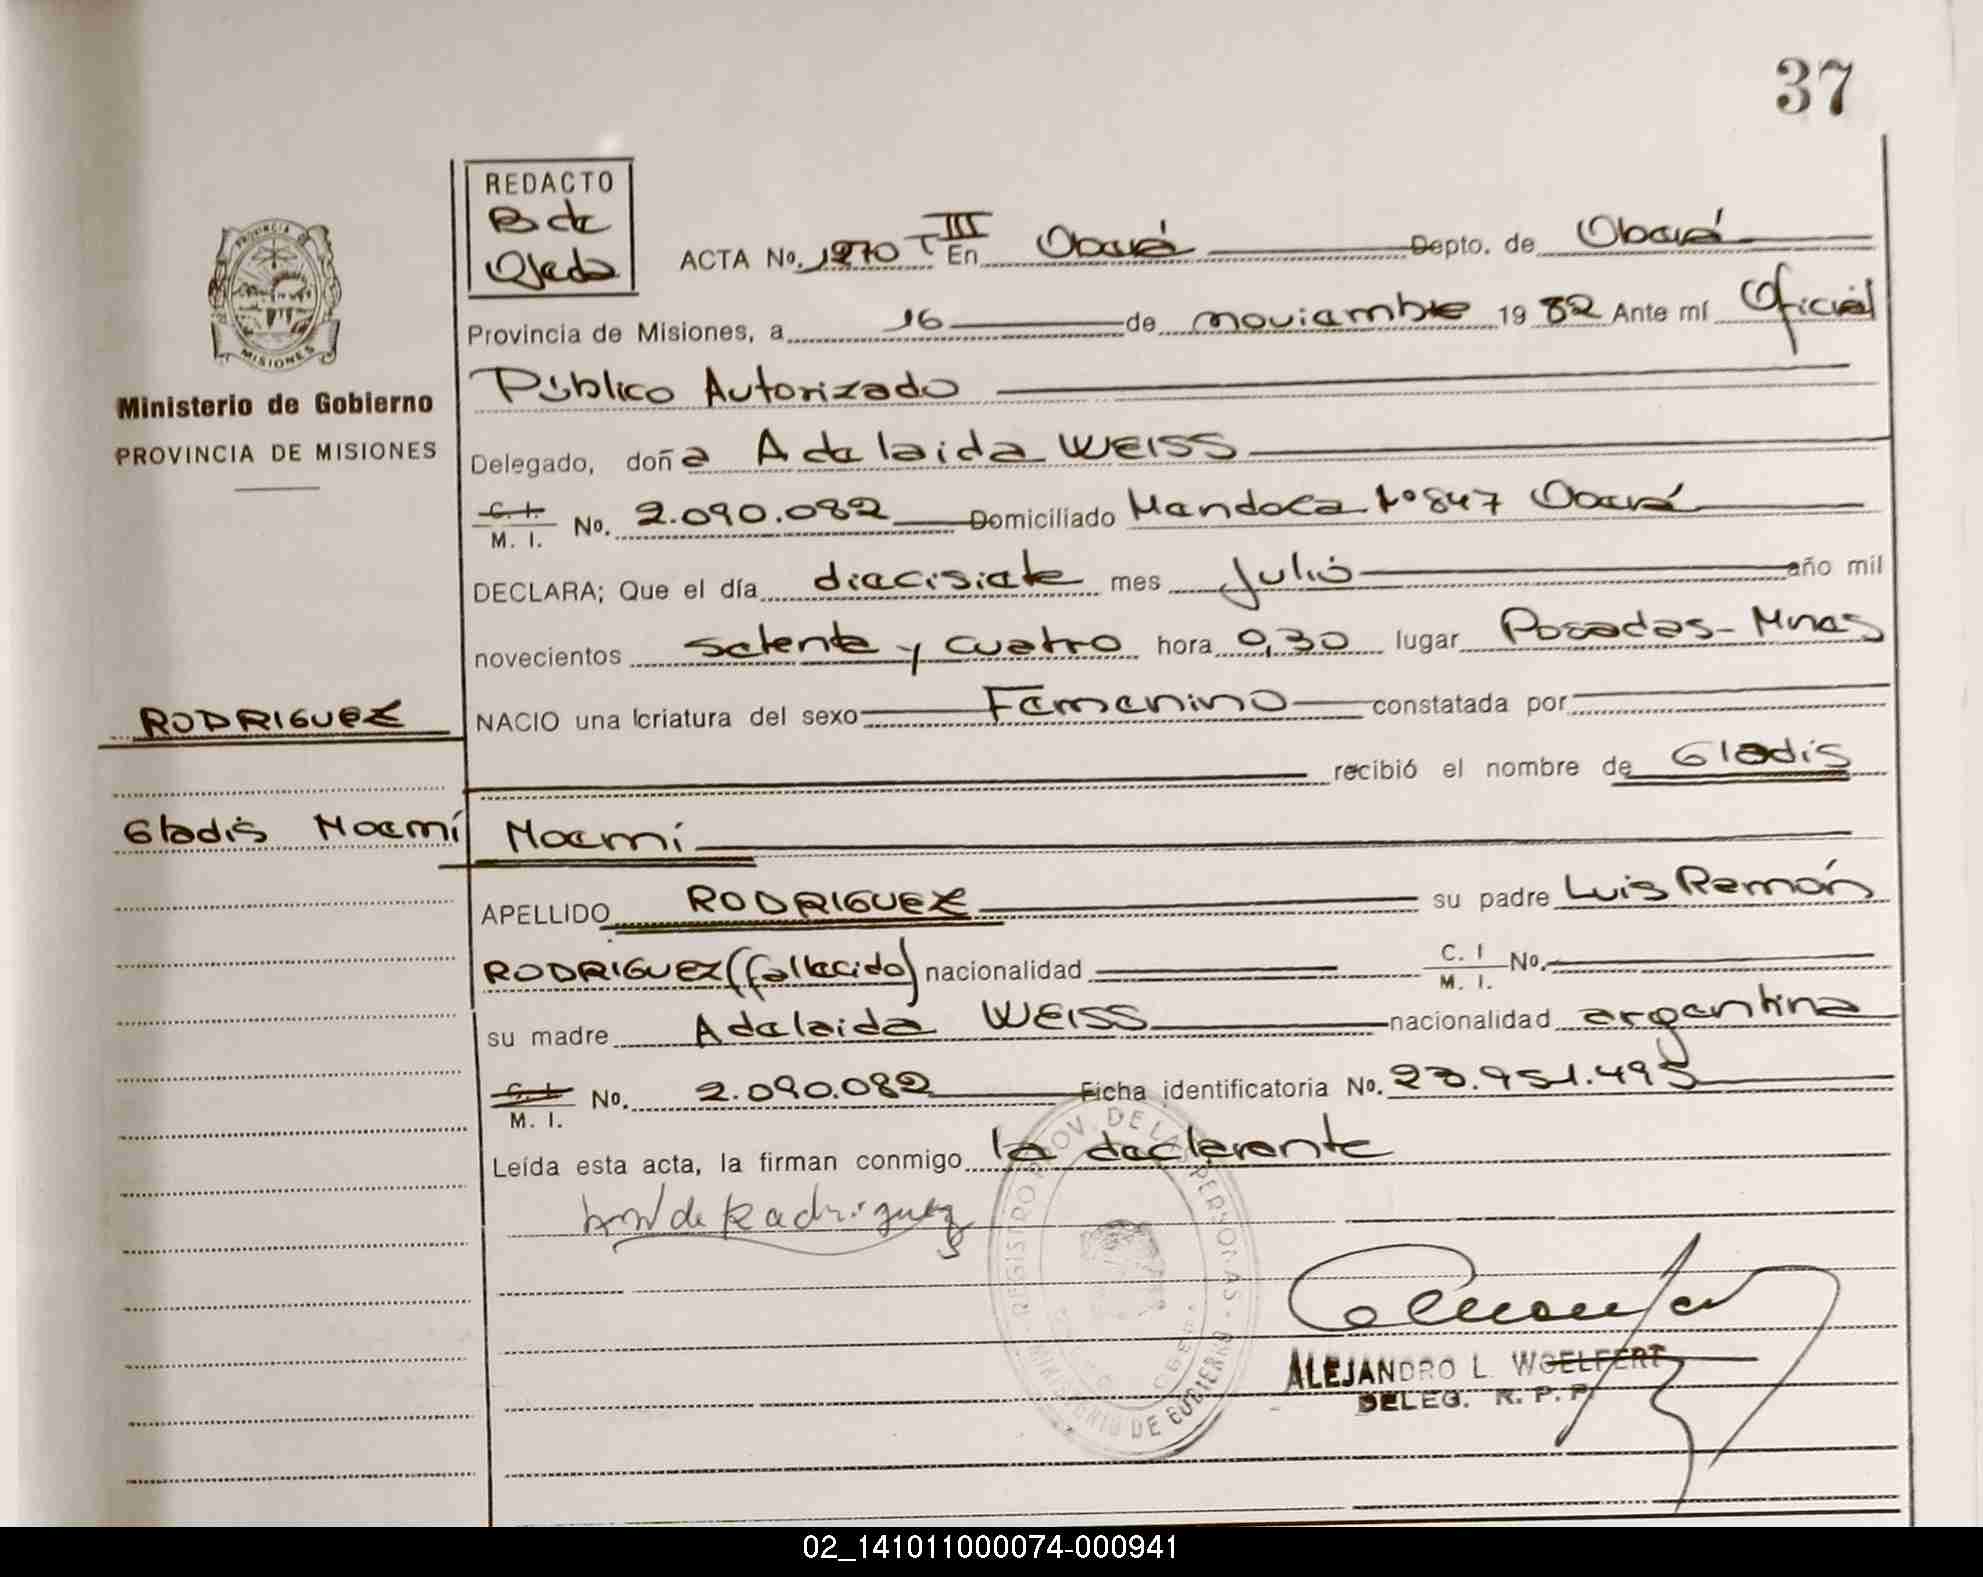 37
REDACTO
B de
Ojeda
ACTA No. 1270 T III En Oberá Depto. de Oberá
Provincia de Misiones, a 16 de noviembre 1982 Ante mí Oficial
Público Autorizado
Ministerio de Gobierno
PROVINCIA DE MISIONES
Delegado, doña Adelaida WEISS
C. I.
M. I. No. 2.090.082 Domiciliado Mendoza Nº 847 Oberá
DECLARA; Que el día diecisiete mes Julio año mil
novecientos setenta y cuatro hora 0,30 lugar Posadas - Mnes
RODRIGUEZ
NACIO una criatura del sexo Femenino constatada por
recibió el nombre de Gladis
Gladis Noemí
Noemí
APELLIDO RODRIGUEZ su padre Luis Ramón
RODRIGUEZ (fallecido) nacionalidad C. I
M. I. No.
su madre Adelaida WEISS nacionalidad argentina
C. I.
M. I. No. 2.090.082 Ficha identificatoria No. 23.951.495
Leída esta acta, la firman conmigo la declarante
de Rodriguez
REGISTRO PROV. DE LAS PERSONAS
MINISTERIO DE GOBIERNO
ALEJANDRO L. WOELFERT
DELEG. R. P. P.
PROVINCIA DE
MISIONES
02_141011000074-000941